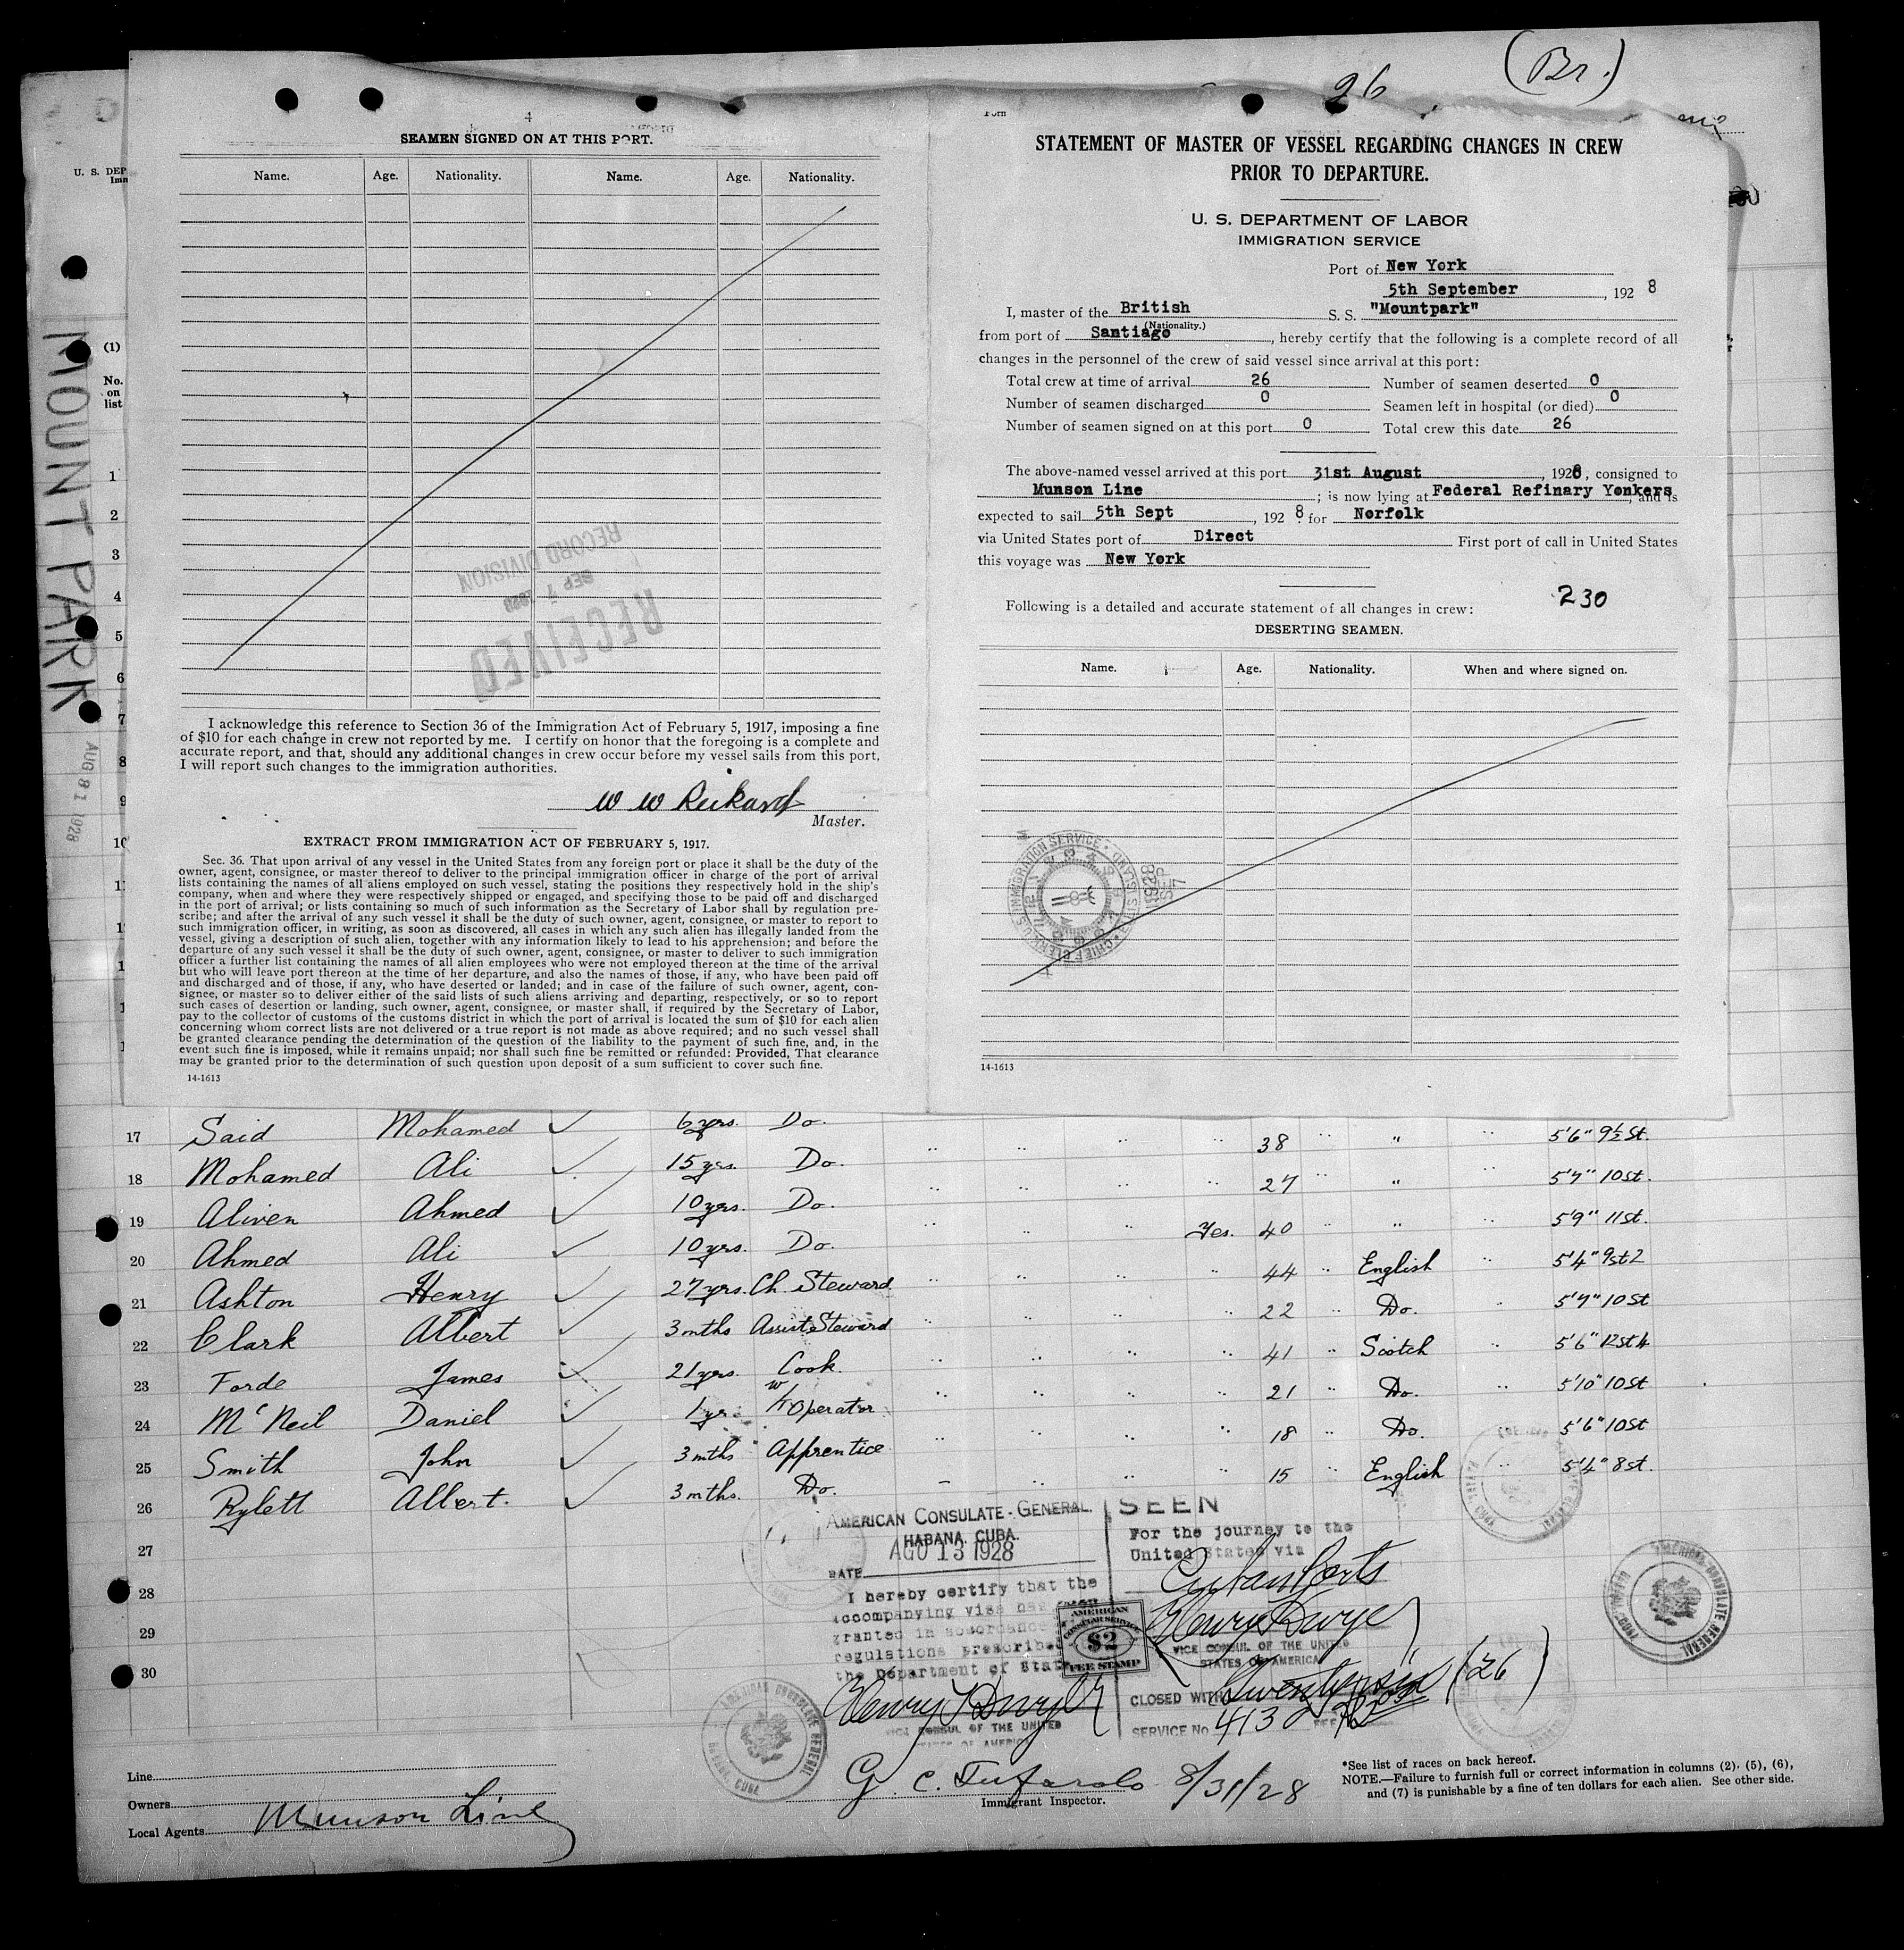 26
(Br.)
4
SEAMEN SIGNED ON AT THIS PORT.
Name. Age. Nationality. Name. Age. Nationality.
RECORD DIVISION
SEP 7 1928
RECEIVED
I acknowledge this reference to Section 36 of the Immigration Act of February 5, 1917, imposing a fine
of $10 for each change in crew not reported by me. I certify on honor that the foregoing is a complete and
accurate report, and that, should any additional changes in crew occur before my vessel sails from this port,
I will report such changes to the immigration authorities.
W W Rickard
Master.
EXTRACT FROM IMMIGRATION ACT OF FEBRUARY 5, 1917.
Sec. 36. That upon arrival of any vessel in the United States from any foreign port or place it shall be the duty of the
owner, agent, consignee, or master thereof to deliver to the principal immigration officer in charge of the port of arrival
lists containing the names of all aliens employed on such vessel, stating the positions they respectively hold in the ship's
company, when and where they were respectively shipped or engaged, and specifying those to be paid off and discharged
in the port of arrival; or lists containing so much of such information as the Secretary of Labor shall by regulation pre-
scribe; and after the arrival of any such vessel it shall be the duty of such owner, agent, consignee, or master to report to
such immigration officer, in writing, as soon as discovered, all cases in which any such alien has illegally landed from the
vessel, giving a description of such alien, together with any information likely to lead to his apprehension; and before the
departure of any such vessel it shall be the duty of such owner, agent, consignee, or master to deliver to such immigration
officer a further list containing the names of all alien employees who were not employed thereon at the time of the arrival
but who will leave port thereon at the time of her departure, and also the names of those, if any, who have been paid off
and discharged and of those, if any, who have deserted or landed; and in case of the failure of such owner, agent, con-
signee, or master so to deliver either of the said lists of such aliens arriving and departing, respectively, or so to report
such cases of desertion or landing, such owner, agent, consignee, or master shall, if required by the Secretary of Labor,
pay to the collector of customs of the customs district in which the port of arrival is located the sum of $10 for each alien
concerning whom correct lists are not delivered or a true report is not made as above required; and no such vessel shall
be granted clearance pending the determination of the question of the liability to the payment of such fine, and, in the
event such fine is imposed, while it remains unpaid; nor shall such fine be remitted or refunded: Provided, That clearance
may be granted prior to the determination of such question upon deposit of a sum sufficient to cover such fine.
14-1613
STATEMENT OF MASTER OF VESSEL REGARDING CHANGES IN CREW
PRIOR TO DEPARTURE.
U. S. DEPARTMENT OF LABOR
IMMIGRATION SERVICE
Port of New York
5th September, 1928
I, master of the British S. S. "Mountpark"
(Nationality.)
from port of Santiago, hereby certify that the following is a complete record of all
changes in the personnel of the crew of said vessel since arrival at this port:
Total crew at time of arrival 26 Number of seamen deserted 0
Number of seamen discharged 0 Seamen left in hospital (or died) 0
Number of seamen signed on at this port 0 Total crew this date 26
The above-named vessel arrived at this port 31st August, 1928, consigned to
Munson Line; is now lying at Federal Refinary Yonkers, and is
expected to sail 5th Sept, 1928 for Norfolk
via United States port of Direct First port of call in United States
this voyage was New York
230
Following is a detailed and accurate statement of all changes in crew:
DESERTING SEAMEN.
Name. Age. Nationality. When and where signed on.
14-1613
U. S. DEP
Imm
MOUNT PARK
AUG 31 1928
(1)
No.
on
list
1
2
3
4
5
6
7
8
9
10
17 Said Mohamed 6 yrs. Do. 38 " 5'6" 9½ St.
18 Mohamed Ali 15 yrs. Do. 27 " 5'7" 10 st.
19 Aliven Ahmed 10 yrs. Do. Yes. 40 " 5'9" 11 st.
20 Ahmed Ali 10 yrs. Do. 44 English 5'4" 9st 2
21 Ashton Henry 27 yrs. Ch. Steward 22 Do. 5'7" 10 St
22 Clark Albert 3 mths Assist Steward 41 Scotch 5'6" 12 St 4
23 Forde James 21 yrs. Cook. 21 Do. 5'10" 10 St
24 McNeil Daniel 1 yr. W/T Operator 18 Do. 5'6" 10 St
25 Smith John 3 mths Apprentice 15 English 5'4" 8 st.
26 Rylett Albert. 3 mths. Do.
27
28
29
30
AMERICAN CONSULATE-GENERAL
HABANA, CUBA.
AGO 13 1928
DATE
I hereby certify that the
accompanying visa has been
granted in accordance
regulations prescribed
the Department of State
Henry T Dwyer
VICE CONSUL OF THE UNITED
STATES OF AMERICA
SEEN
For the journey to the
United States via
Cuban Ports
Henry T Dwyer
VICE CONSUL OF THE UNITED
STATES OF AMERICA
AMERICAN
CONSULAR SERVICE
$2
FEE STAMP
CLOSED WITH Twentysix (26)
SERVICE No. 4132
AMERICAN CONSULATE GENERAL
HABANA, CUBA
Line
Owners
Local Agents Munson Line
G. C. Tufarolo 8/31/28
Immigrant Inspector.
*See list of races on back hereof.
NOTE.—Failure to furnish full or correct information in columns (2), (5), (6),
and (7) is punishable by a fine of ten dollars for each alien. See other side.